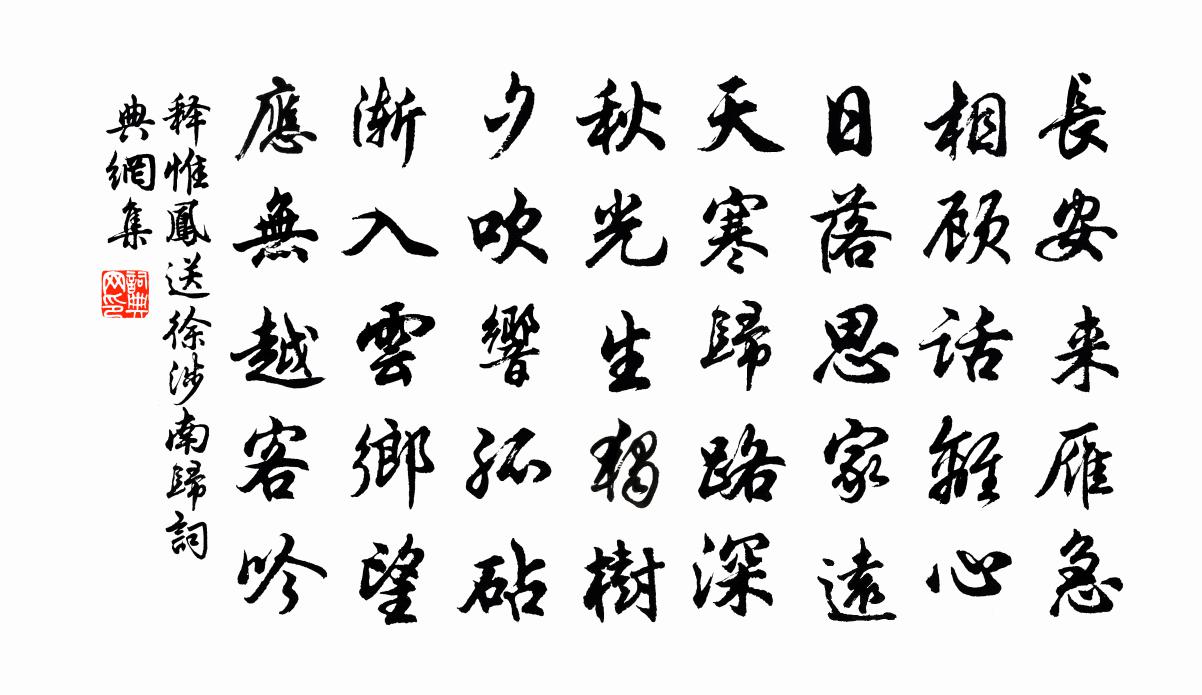 長安来雁急
相顾話離心
日落思家遠
天寒歸路深
秋光生獨樹
夕吹響孤砧
漸入雲鄉望
應無越客吟
释惟鳳送徐涉南歸詞
典網集
詞典
网印